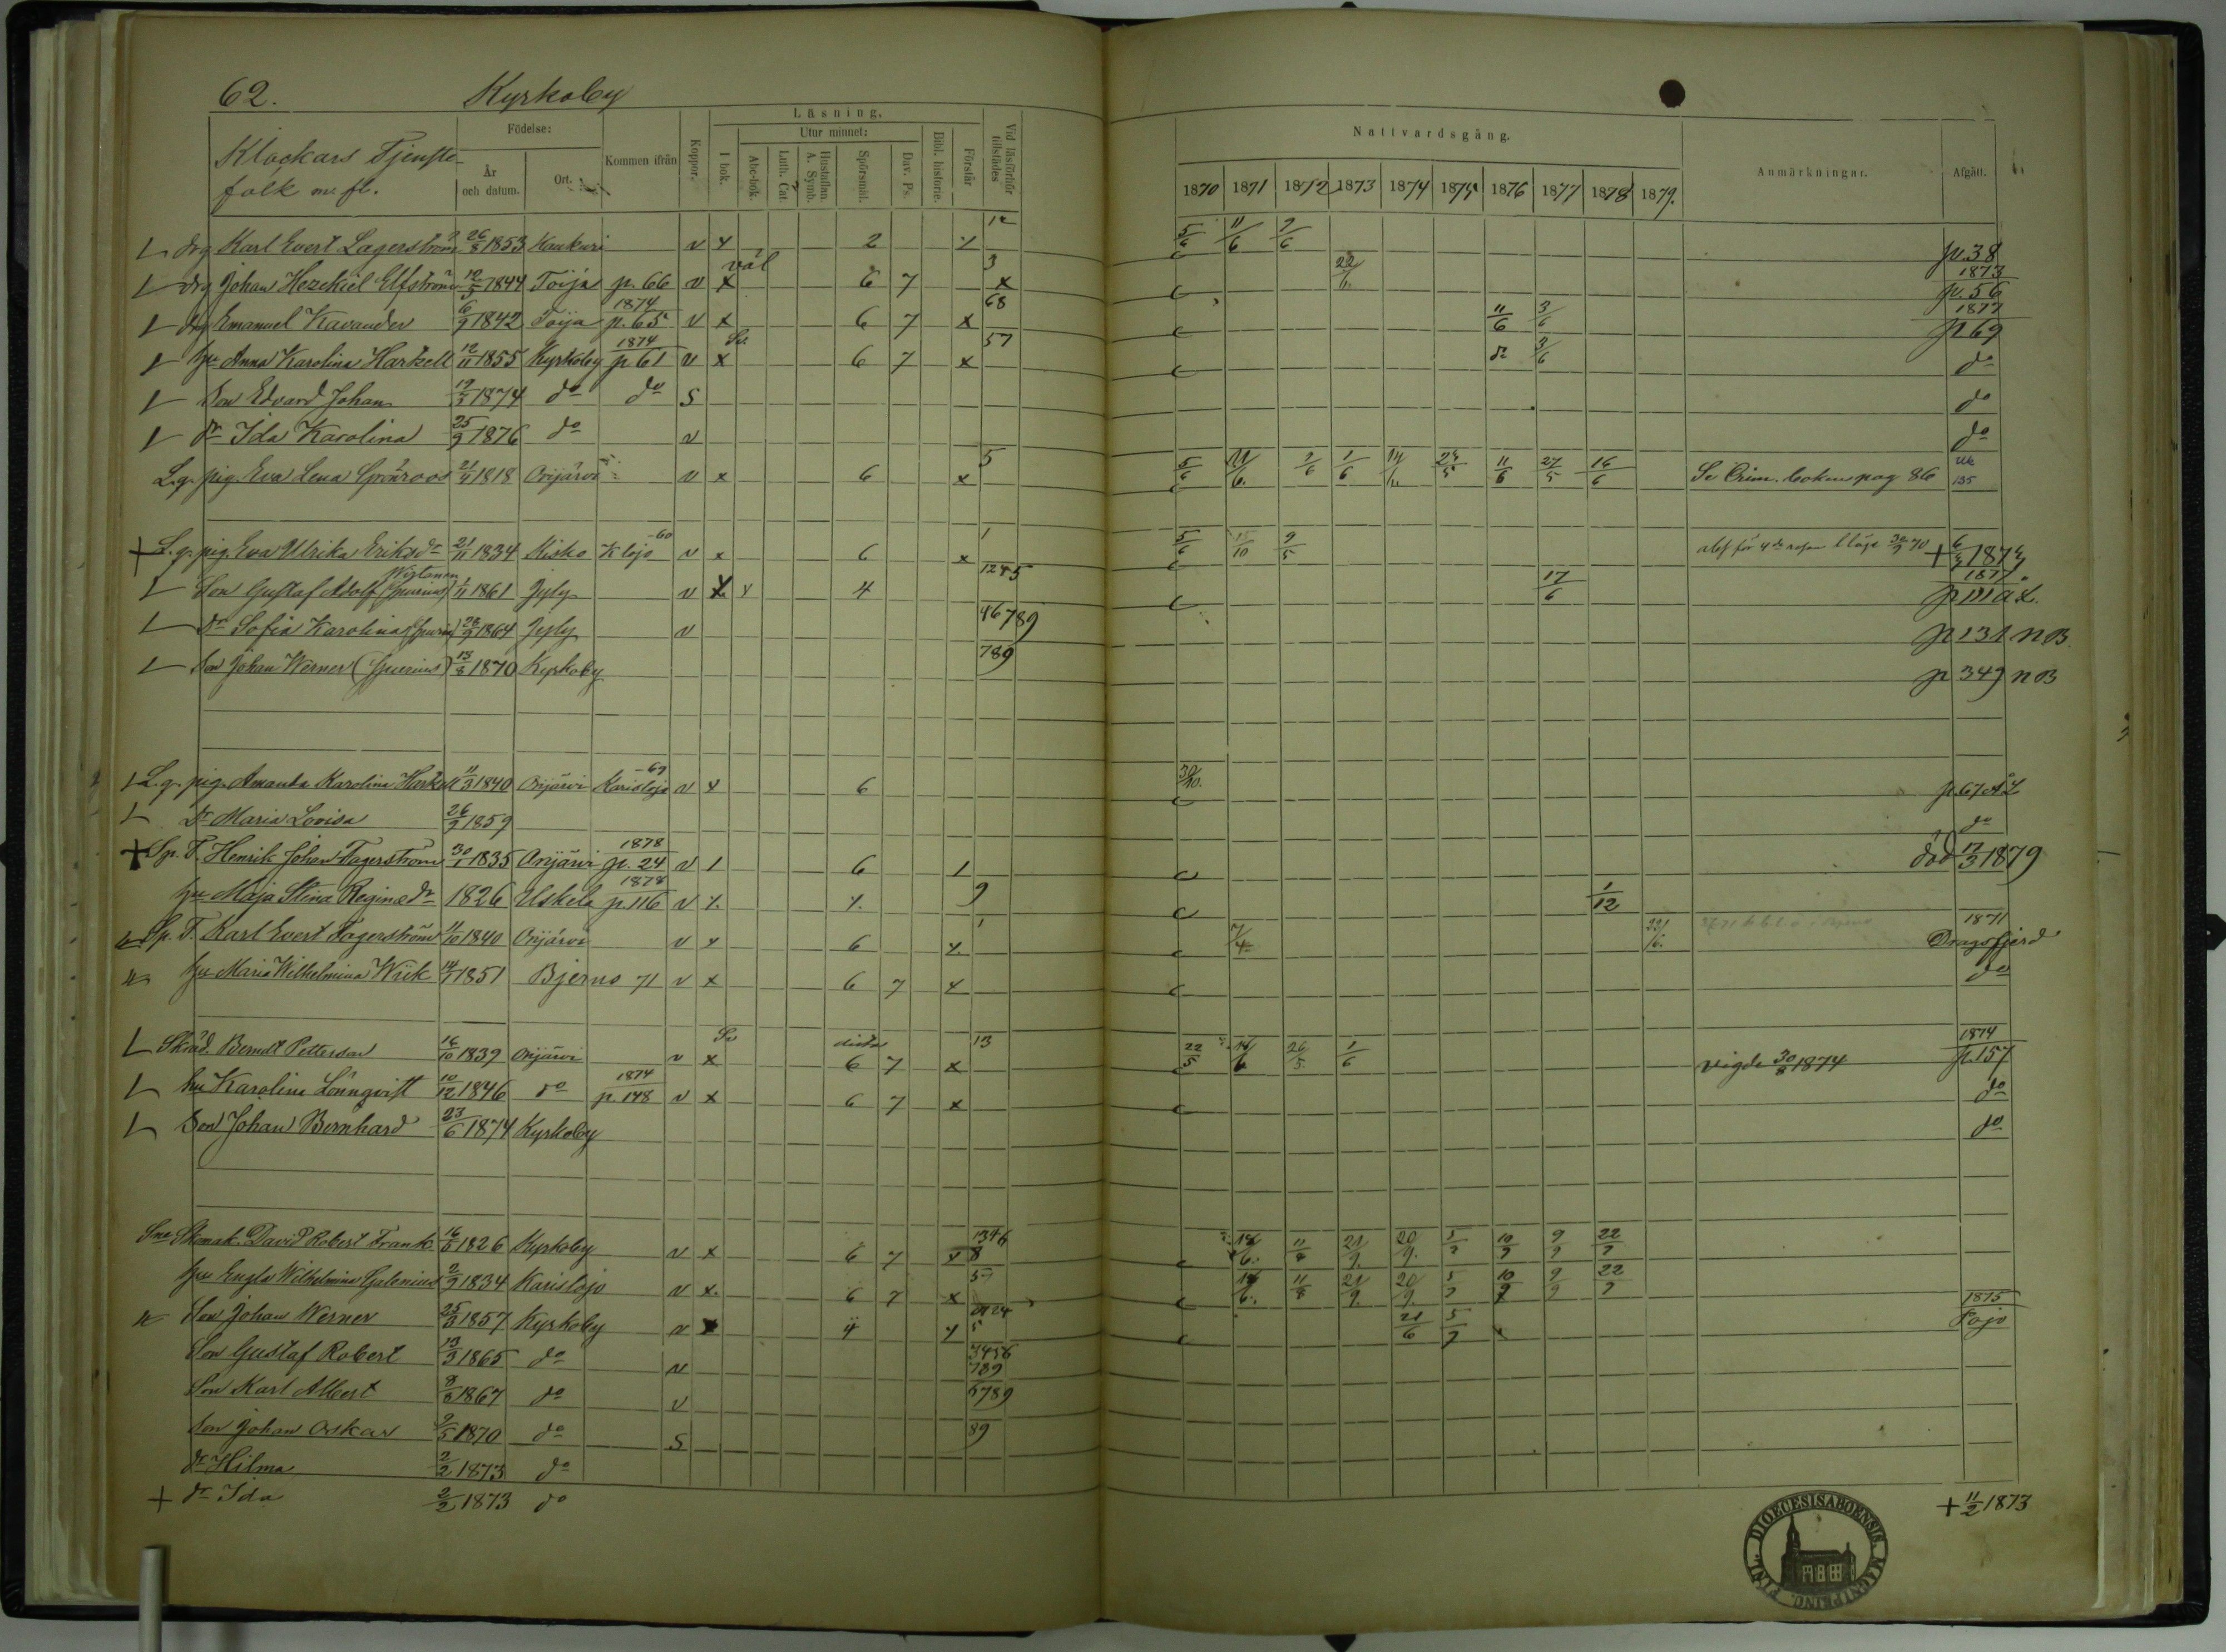 62. Kyrkoby
Klockars Tjenste-
folk m. fl.
Födelse:
År
och datum.
Ort.
Kommen ifrån
Koppor.
Läsning.
I bok.
Utur minnet:
Abc-bok.
Luth. Cat.
Hustaflan.
A. Symb.
Spörsmål.
Dav. Ps.
Bibl. historie.
Förstår
Vid läsförhör
tillstädes
Nattvardsgång.
1870 1871 1872 1873 1874 1875 1876 1877 1878 1879.
Anmärkningar.
Afgått.
drg Karl Evert Lagerström 26/8 1853 Kaukuri v 2 12 5/6 11/6 9/6 p. 38
drg Johan Hezekiel Elfström 1844 Toija p. 66 v x väl 6 7 x 3 22/6 1873 p. 56
drg Emanuel Kavander 6/9 1842 Toija 1874 p. 65 v x 6 7 x 68 11/6 3/6 1877 p 69
hu Anna Karolina Harkell 12/11 1855 Kyrkoby 1874 p 61 v x 6 7 x 57 do 3/6 do
Son Edvard Johan 1874 do do S do
dr Ida Karolina 25/9 1876 do v do
L.g. pig. Eva Lena Grönroos 21/4 1818 Orijärvi v x 6 x 5 5/6 9/6 1/6 11/6 27/5 16/6 Se Crim. boken pag 86 135
+ L.g. pig. Eva Ulrika Eriksdr 21/11 1834 Kisko K lojo -60 v x 6 x 1 5/6 15/10 9/5 + 187
Son Gustaf Adolf (Spurius) 1/11 1861 Jyly v x 4 1245 17/6 1877
dr Sofia Karolina (Spuria) 28/9 1864 Jyly v 46789 p 131 NB.
Son Johan Werner (Spurius) 13/8 1870 Kyrkoby 789 p 349 NB
L.g. pig. Amanda Karolina Harkell 11/3 1840 Orijärvi Karislojo -69 v x 6 30/10. p. 67
Dr Maria Lovisa 26/9 1859 do
+ Sp. T. Henrik Johan Fagerström 30/1 1835 Orijärvi 1878 p. 24 v 1 6 1 död 17/3 1879
hu Maja Stina Reginædr 1826 Uskela 1878 p 116 v 9 1/12
Sp. T. Karl Evert Fagerström 11/10 1840 Orijärvi v x 6 x 1 7/4 22/6. 1871 Dragsfjerd
hu Maria Wilhelmina Wik 1851 Bjerno 71 v x 6 7 x do
Skräd. Berndt Petterson 16/10 1839 Orijärvi v x 6 7 x 13 22/5 14/6 26/5 1/6 Vigde 30/8 1874 1874 p. 157
hu Karolina Lönnqvist 10/12 1846 do 1874 p. 148 v x 6 7 x do
Son Johan Bernhard 23/6 1874 Kyrkoby do
Skomak. David Robert Frank 16/5 1826 Kyrkoby v x 6 7 x 1346 8 11/8 21/9 20/9. 5/9 10/9 9/9 22/9
hu Engla Wilhelmina Galenius 2/9 1834 Karislojo v x. 6 7 x 57 11/8 21/9. 20/9. 5/9 10/9 9/9 22/9
Son Johan Werner 25/3 1857 Kyrkoby v x 4 x 21/6 5/9 1875 Pojo
Son Gustaf Robert 13/3 1865 do v 3456 789
Son Karl Albert 8/8 1867 do v 6789
Son Johan Oskar 9/5 1870 do S 89
dr Hilma 2/2 1873 do
+ dr Ida 2/2 1873 do + 11/2 1873
DIOECESIS ABOENSIS. MAGNI PRINC. FINL.